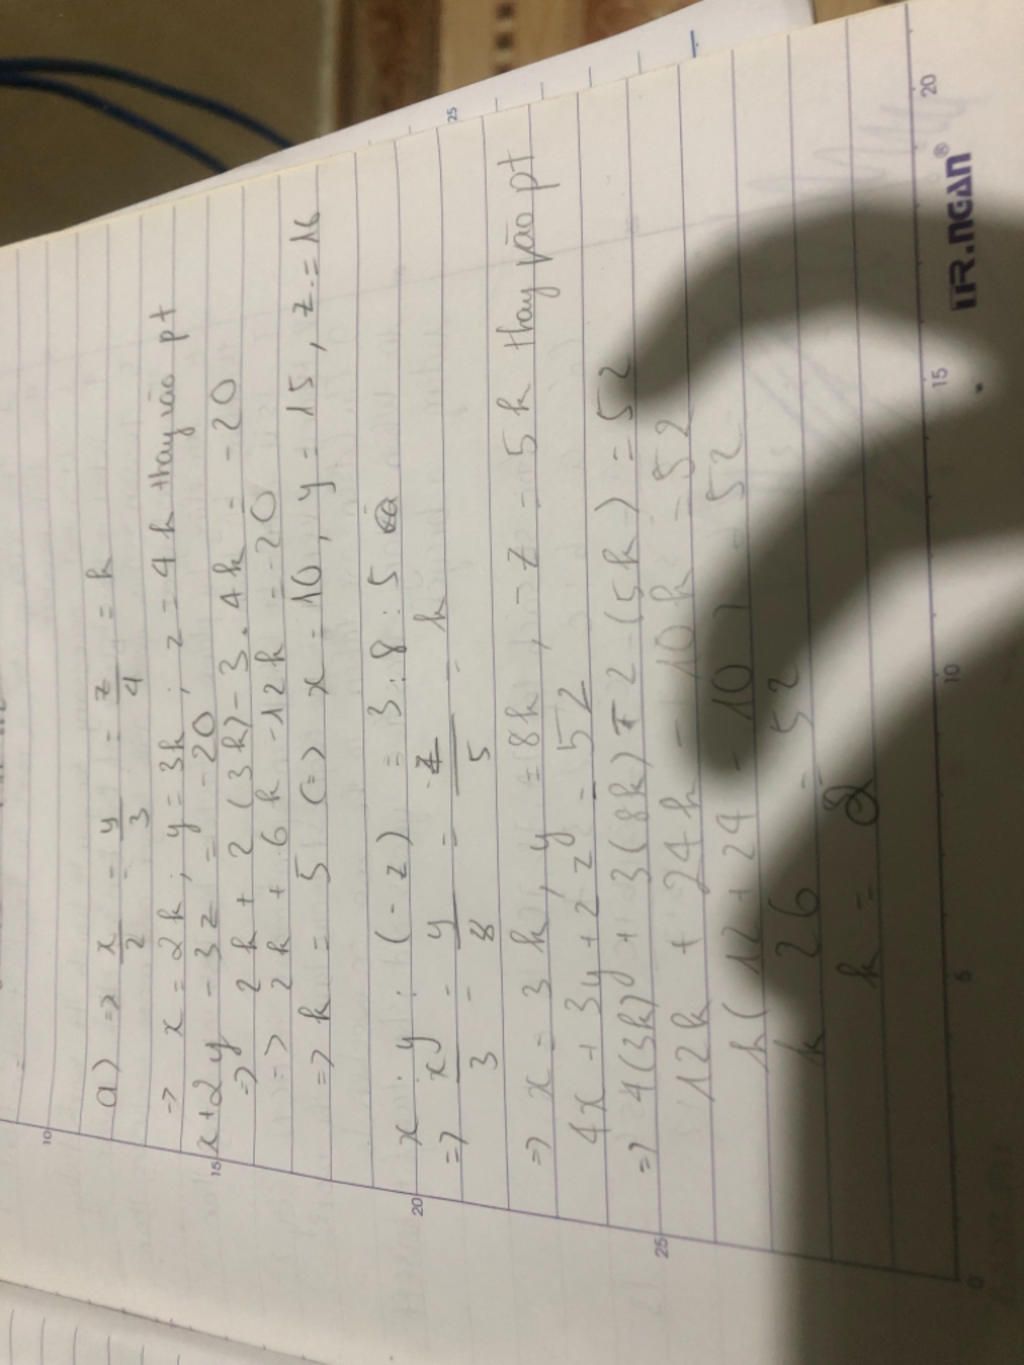 a) => x/2 = y/3 = z/4 = k
-> x = 2k ; y = 3k ; z = 4k thay vào pt
x + 2y - 3z = -20
=> 2k + 2(3k) - 3.4k = -20
=> 2k + 6k - 12k = -20
=> k = 5 (=> x = 10, y = 15, z = 16
x : y : (-z) = 3 : 8 : 5
=> x/3 = y/8 = -z/5 = k
=> x = 3k, y = 8k, -z = 5k thay vào pt
4x + 3y + 2z = 52
=> 4(3k) + 3(8k) - 2(5k) = 52
12k + 24k - 10k = 52
k(12 + 24 - 10) = 52
k 26 = 52
k = 2
10
15
20
25
0
5
10
15
20
25
TR.NGAN®